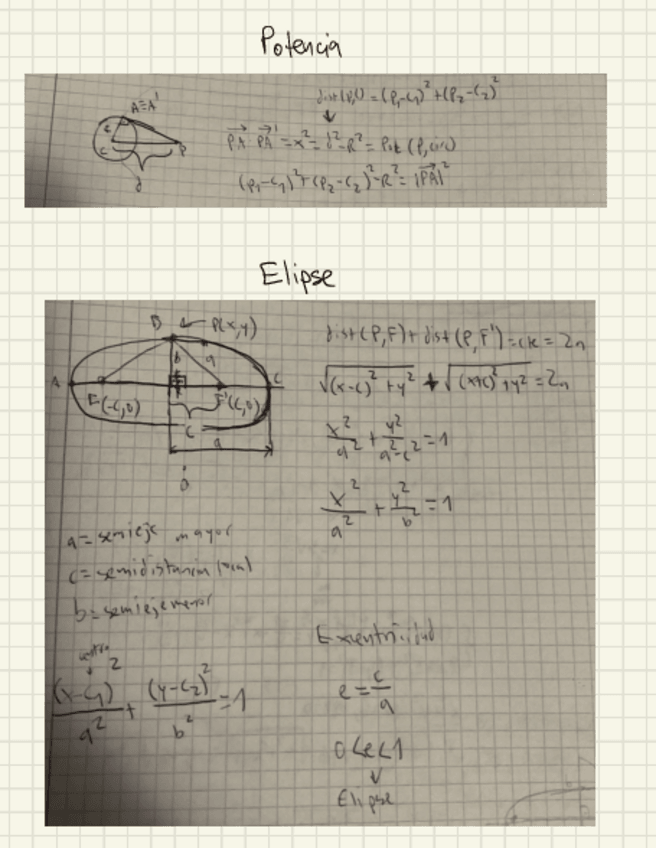 Potencia
A≡A'
c
P
d
dist(P,C) = (P₁-C₁)² + (P₂-C₂)²
↓
PA · PA' = x² = d² - R² = Pot (P, circ)
(P₁-C₁)² + (P₂-C₂)² - R² = |PA|²
Elipse
B ← P(x,y)
b a
A C
F(-c,0) F'(c,0)
c
a
0
dist(P,F) + dist(P,F') = cte = 2a
√((x-c)² + y²) + √((x+c)² + y²) = 2a
x²/a² + y²/a²-c² = 1
x²/a² + y²/b² = 1
a = semieje mayor
c = semidistancia focal
b = semieje menor
centro
↓
(x-c₁)²/a² + (y-c₂)²/b² = 1
Exentricidad
e = c/a
0<e<1
↓
Elipse